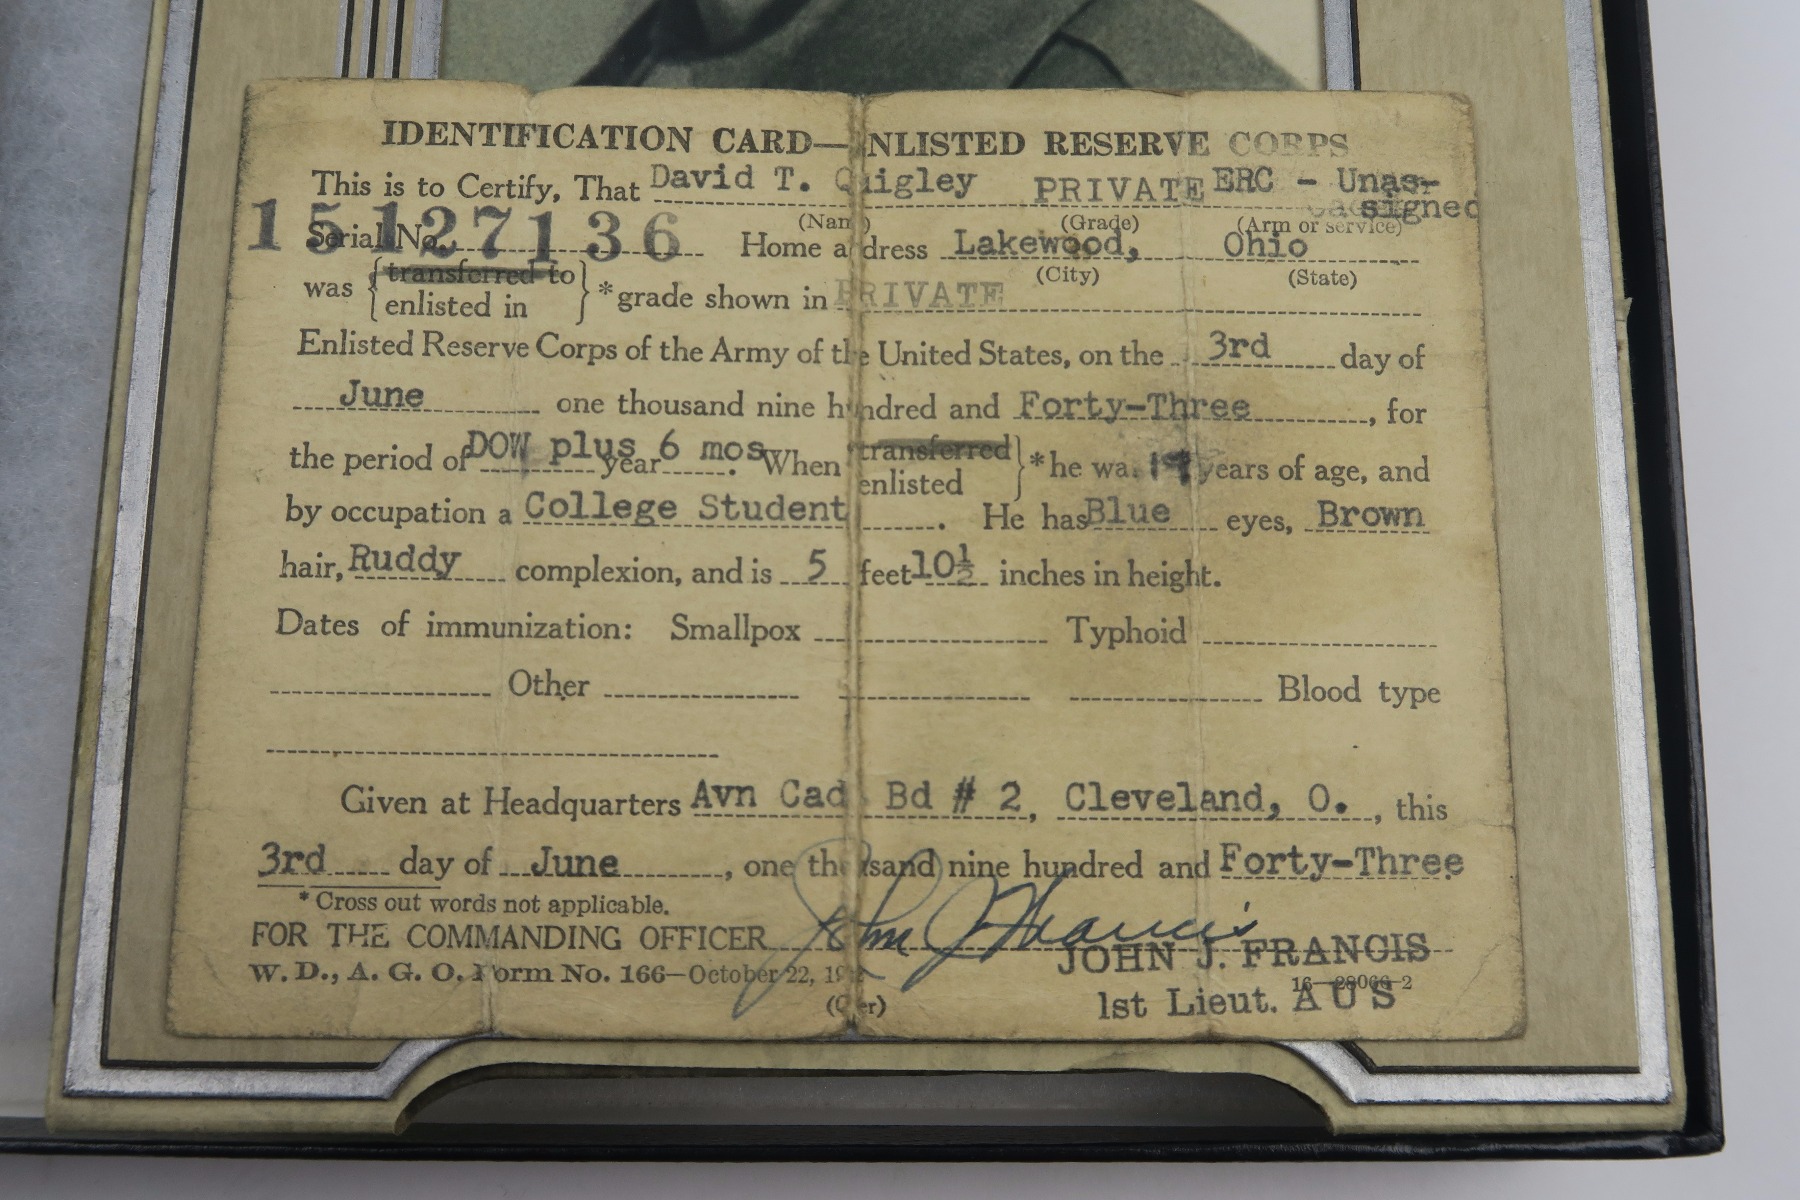 IDENTIFICATION CARD—ENLISTED RESERVE CORPS
This is to Certify, That David T. Quigley PRIVATE ERC - Unas-
signed
(Name) (Grade) (Arm or service)
Serial No. 15127136 Home address Lakewood, Ohio
(City) (State)
was {transferred to
enlisted in} * grade shown in PRIVATE
Enlisted Reserve Corps of the Army of the United States, on the 3rd day of
June one thousand nine hundred and Forty-Three, for
the period of DOW plus 6 mos. year When {transferred
enlisted} * he was years of age, and
by occupation a College Student. He has Blue eyes, Brown
hair, Ruddy complexion, and is 5 feet 10½ inches in height.
Dates of immunization: Smallpox Typhoid
Other Blood type
Given at Headquarters Avn Cad Bd # 2, Cleveland, O., this
3rd day of June, one thousand nine hundred and Forty-Three
* Cross out words not applicable.
FOR THE COMMANDING OFFICER John J Francis
JOHN J. FRANCIS
W. D., A. G. O. Form No. 166—October 22, 16—28066-2
(Over) 1st Lieut. AUS